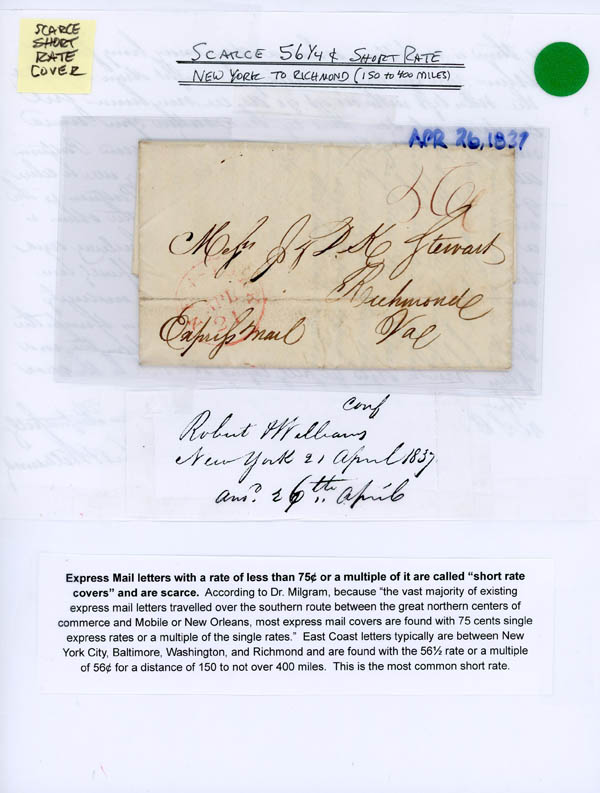 SCARCE
SHORT
RATE
COVER
SCARCE 56¼ ¢ SHORT RATE
NEW YORK TO RICHMOND (150 to 400 MILES)
APR 26, 1837
56¼
Messrs J & D. K Stewart
Richmond
Vae
Express mail
APL
21
conf
Robert & Williams
New York 21 April 1837
ansd. 26th April
Express Mail letters with a rate of less than 75¢ or a multiple of it are called “short rate
covers” and are scarce. According to Dr. Milgram, because “the vast majority of existing
express mail letters travelled over the southern route between the great northern centers of
commerce and Mobile or New Orleans, most express mail covers are found with 75 cents single
express rates or a multiple of the single rates.” East Coast letters typically are between New
York City, Baltimore, Washington, and Richmond and are found with the 56½ rate or a multiple
of 56¢ for a distance of 150 to not over 400 miles. This is the most common short rate.